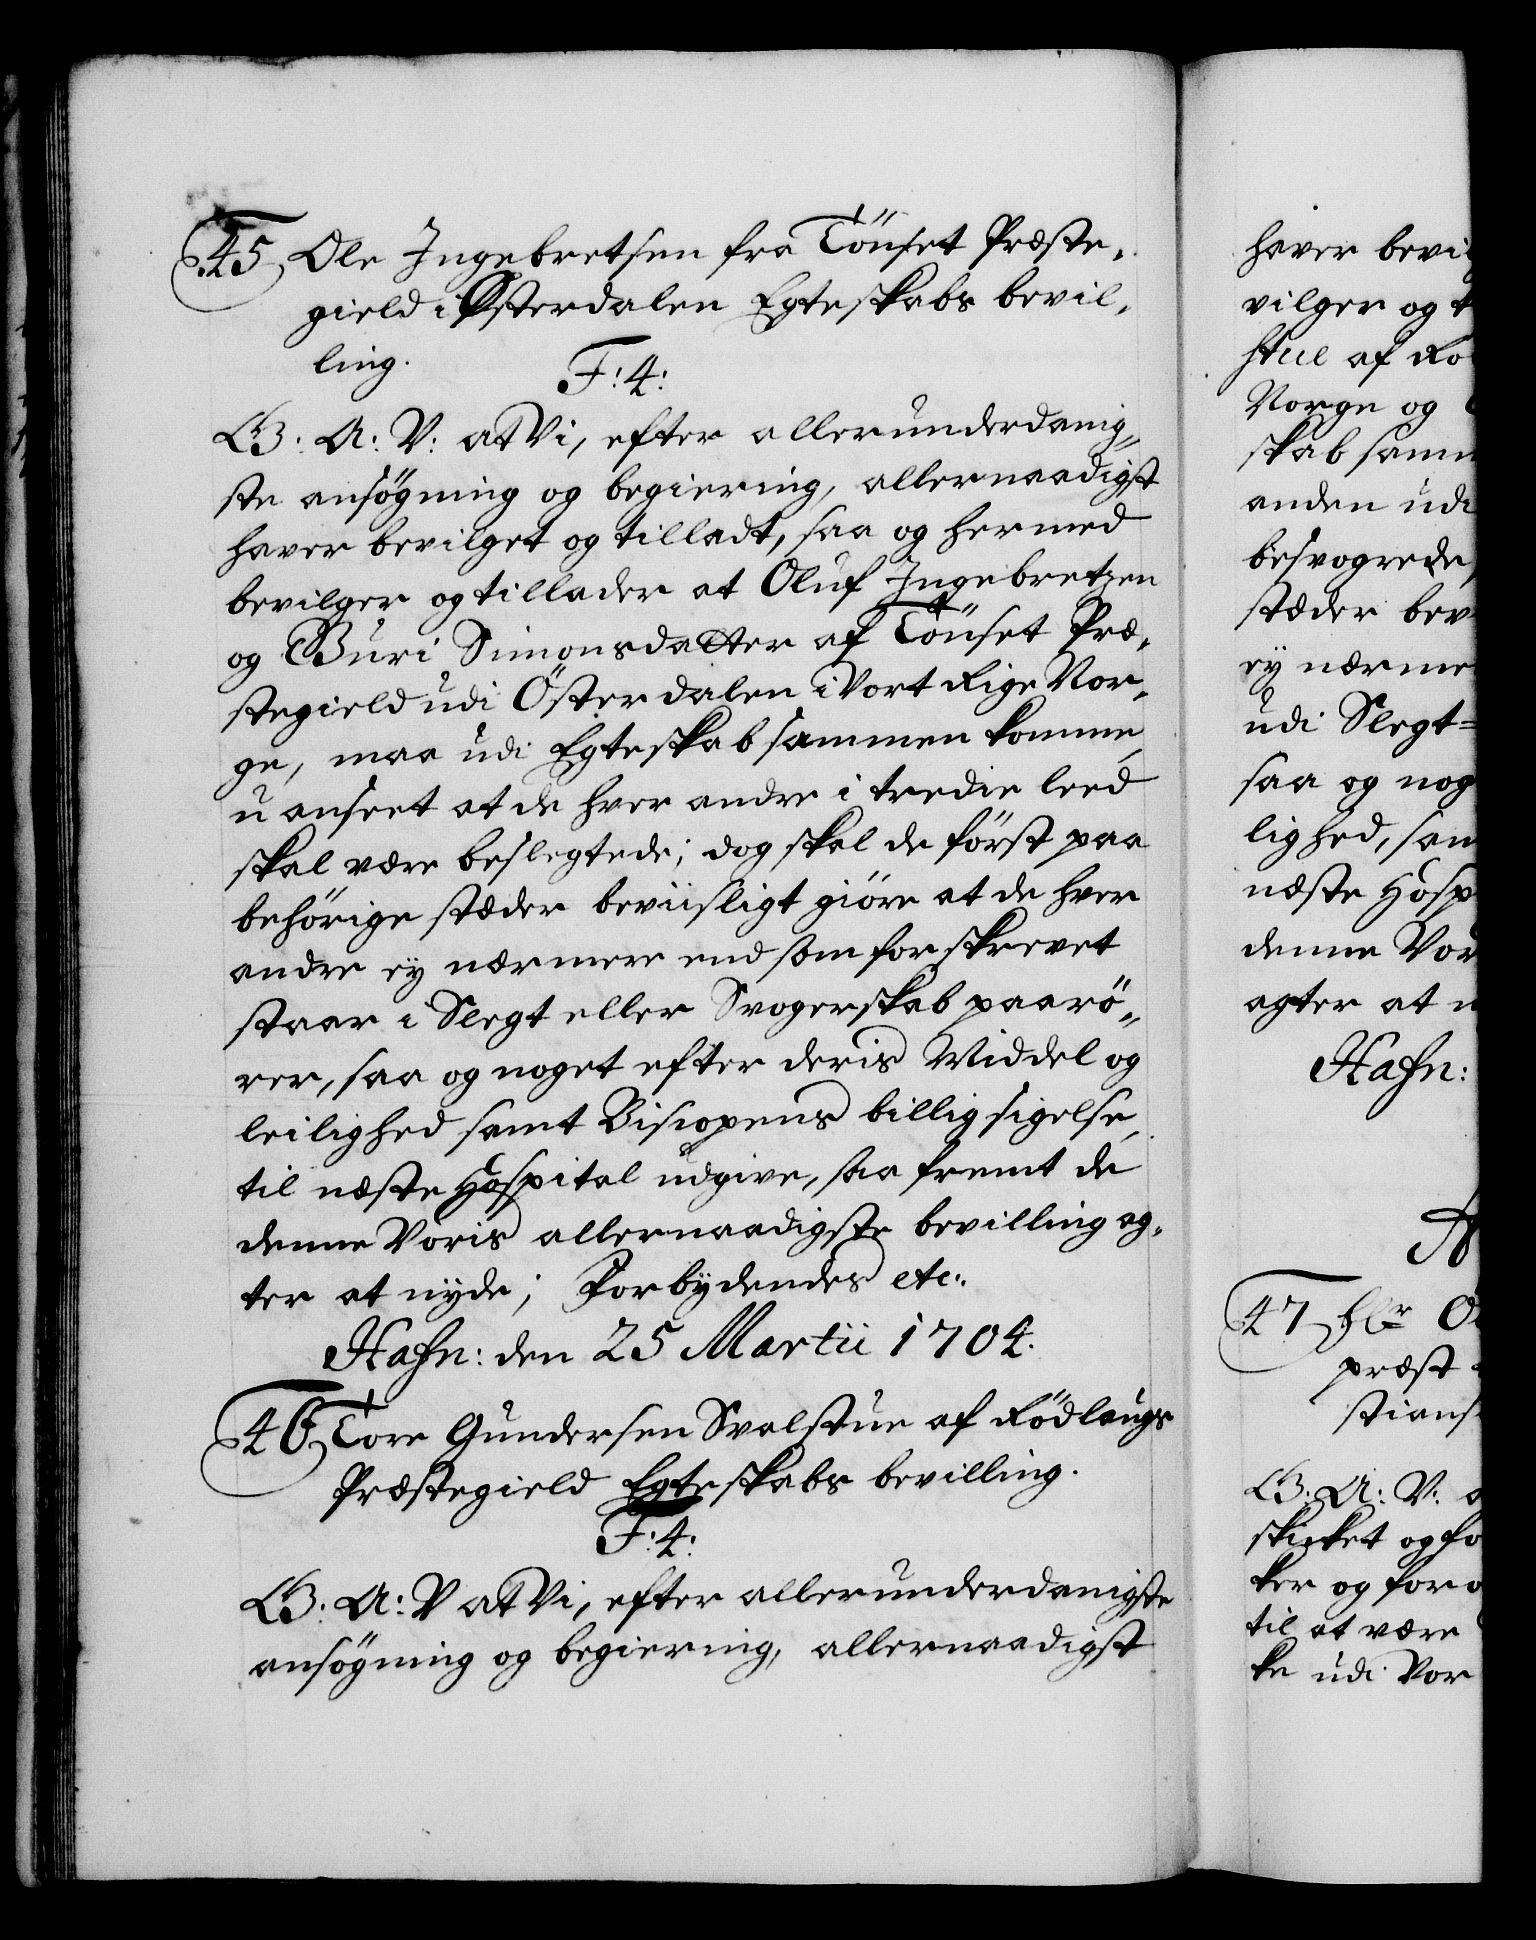 45 Ole Ingebretsen fra Tönset Præste¬
gield i Østerdalen Egteskabs bevil¬
ling.
F: 4:
G: A: V: at Vi, efter allerunderdanig¬
ste ansögning og begiering, allernaadigst
haver bevilget og tilladt, saa og hermed
bevilger og tillader at Oluf Ingebretzen
og Guri Simonsdatter af Tönset Præ¬
stegield udi Österdalen i Vort Rige Nor¬
ge, maa udi Egteskab sammen komme,
uanseet at de hver andre i tredie leed
skal være beslegtede; dog skal de först paa
behörige stæder beviisligt giöre at de hver
andre ey nærmere end som forskrevet
staar i Slegt eller Svogerskab paarö¬
rer, saa og noget efter deris Middel og
leilighed samt Biscopens billigsigelse,
til næste Hospital udgive, saa fremt de
denne Voris allernaadigste bevilling ag¬
ter at nyde; Forbydendes etc:
Hafn: den 25 Martii 1704.
46 Tore Gundersen Svalstue af Rödlaugs
Præstegield Egteskabs bevilling.
F: 4:
G: A: V at Vi, efter allerunderdanigste
ansögning og begiering, allernaadigst
haver bevil
vilger og t
stue af Ro
Norge og
skab samm
anden udi
besvogrede,
stæder bev
ey nærme
udi Slegt=
saa og nog
lighed, sam
næste Hosp
denne Vor
agter at n
Hafn:
47 Hr O
præst
stians
G: A: V: a
skicket og fo
ker og foro
til at være
ke udi Vor